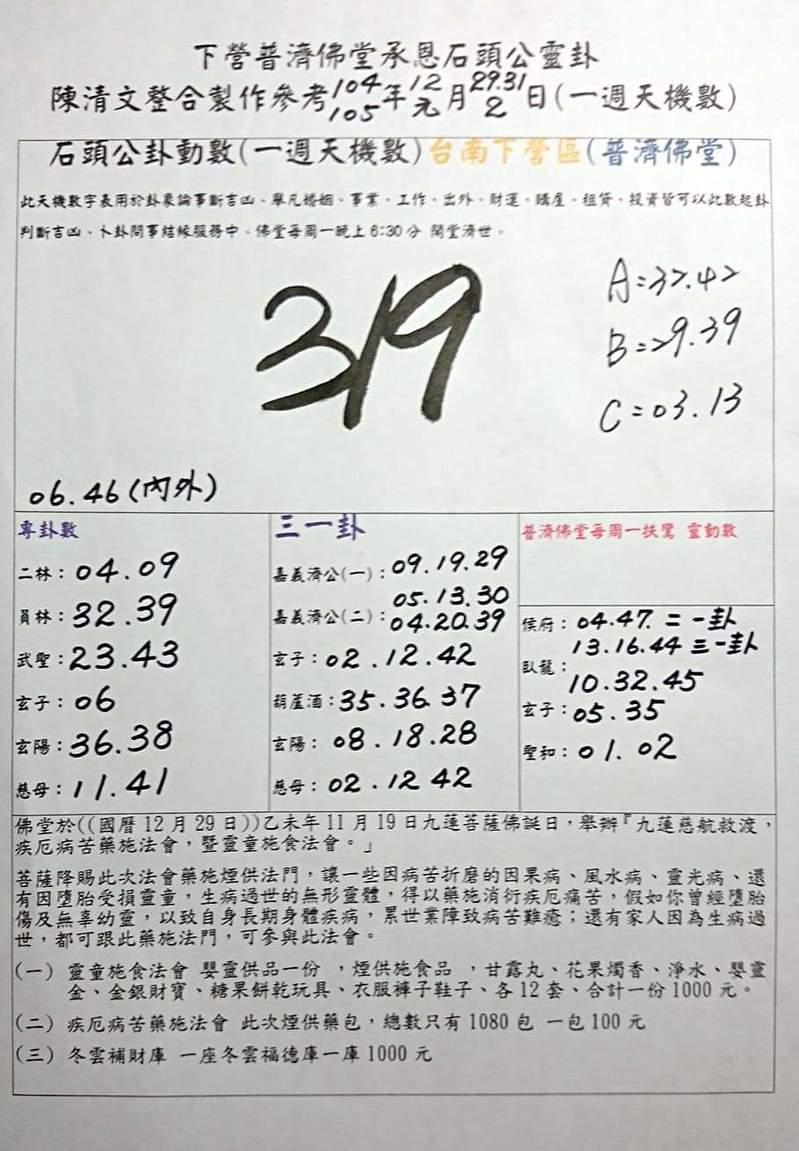 下營普濟佛堂承恩石頭公靈卦
陳清文整合製作參考104年12月29.31日(一週天機數)
105 元 2
石頭公卦動數(一週天機數)台南下營區(普濟佛堂)
此天機數字表用於卦象論事斷吉凶、舉凡婚姻、事業、工作、出外、財運、購屋、租貸、投資皆可以此數起卦
判斷吉凶、卜卦問事結緣服務中、佛堂每周一晚上6:30分 開堂濟世。
319
A=37.42
B=29.39
C=03.13
06.46(內外)
專卦數
二林:04.09
員林:32.39
武聖:23.43
玄子:06
玄陽:36.38
慈母:11.41
三一卦
嘉義濟公(一):09.19.29
05.13.30
嘉義濟公(二):04.20.39
玄子:02.12.42
葫蘆酒:35.36.37
玄陽:08.18.28
慈母:02.12 42
普濟佛堂每周一扶鸞 靈動數
侯府:04.47.二一卦
13.16.44三一卦
臥龍:10.32.45
玄子:05.35
聖和:01.02
佛堂於((國曆12月29日))乙未年11月19日九蓮菩薩佛誕日,舉辦『九蓮慈航救渡,
疾厄病苦藥施法會,暨靈童施食法會。」
菩薩降賜此次法會藥施煙供法門,讓一些因病苦折磨的因果病、風水病、靈光病、還
有因墮胎受損靈童,生病過世的無形靈體,得以藥施消衍疾厄痛苦,假如你曾經墮胎
傷及無辜幼靈,以致自身長期身體疾病,累世業障致病苦難癒;還有家人因為生病過
世,都可跟此藥施法門,可參與此法會。
(一) 靈童施食法會 嬰靈供品一份 ,煙供施食品 ,甘露丸、花果燭香、淨水、嬰靈
金、金銀財寶、糖果餅乾玩具、衣服褲子鞋子、各12套、合計一份1000元。
(二) 疾厄病苦藥施法會 此次煙供藥包,總數只有1080包 一包100元
(三) 冬雲補財庫 一座冬雲福德庫一庫1000元